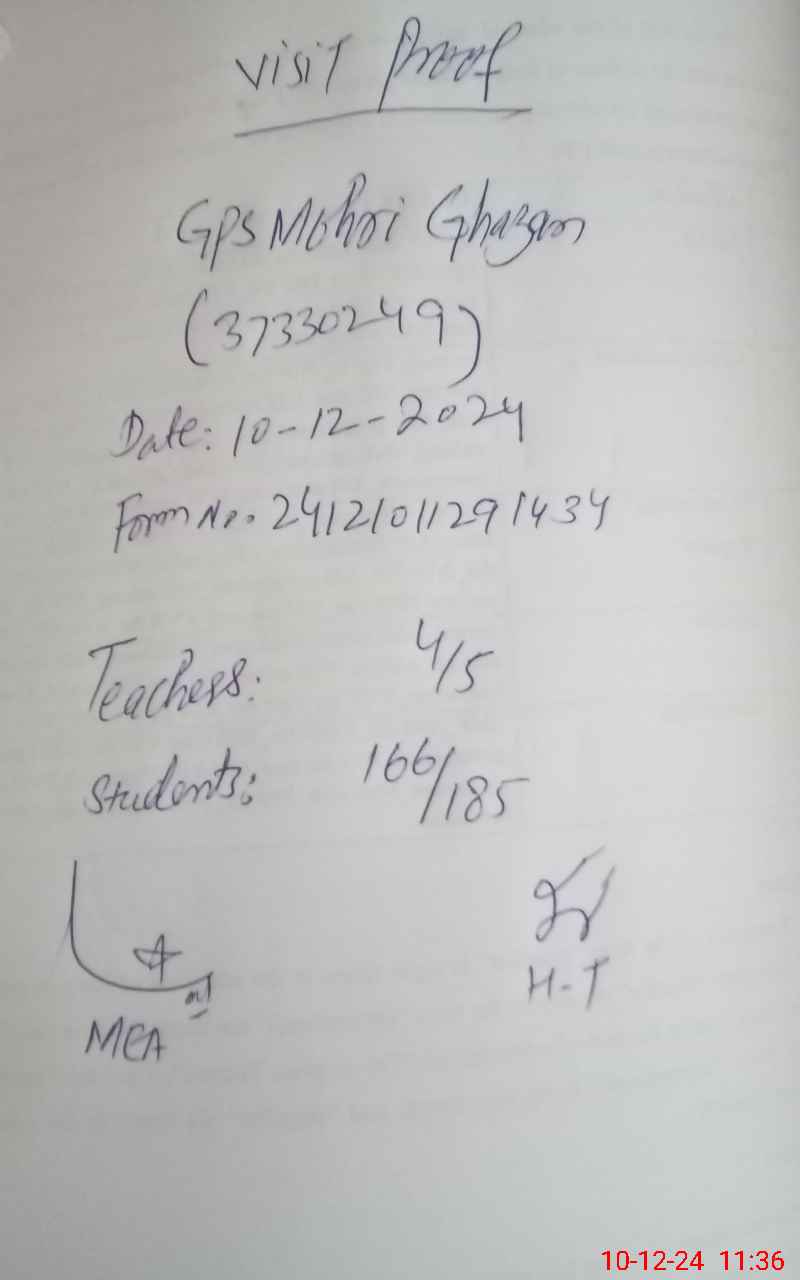 Visit Proof
GPS Mohri Ghazan
(37330249)
Date: 10-12-2024
Form No. 24121011291434
Teachers: 4/5
Students: 166/185
MEA
H-T
10-12-24 11:36